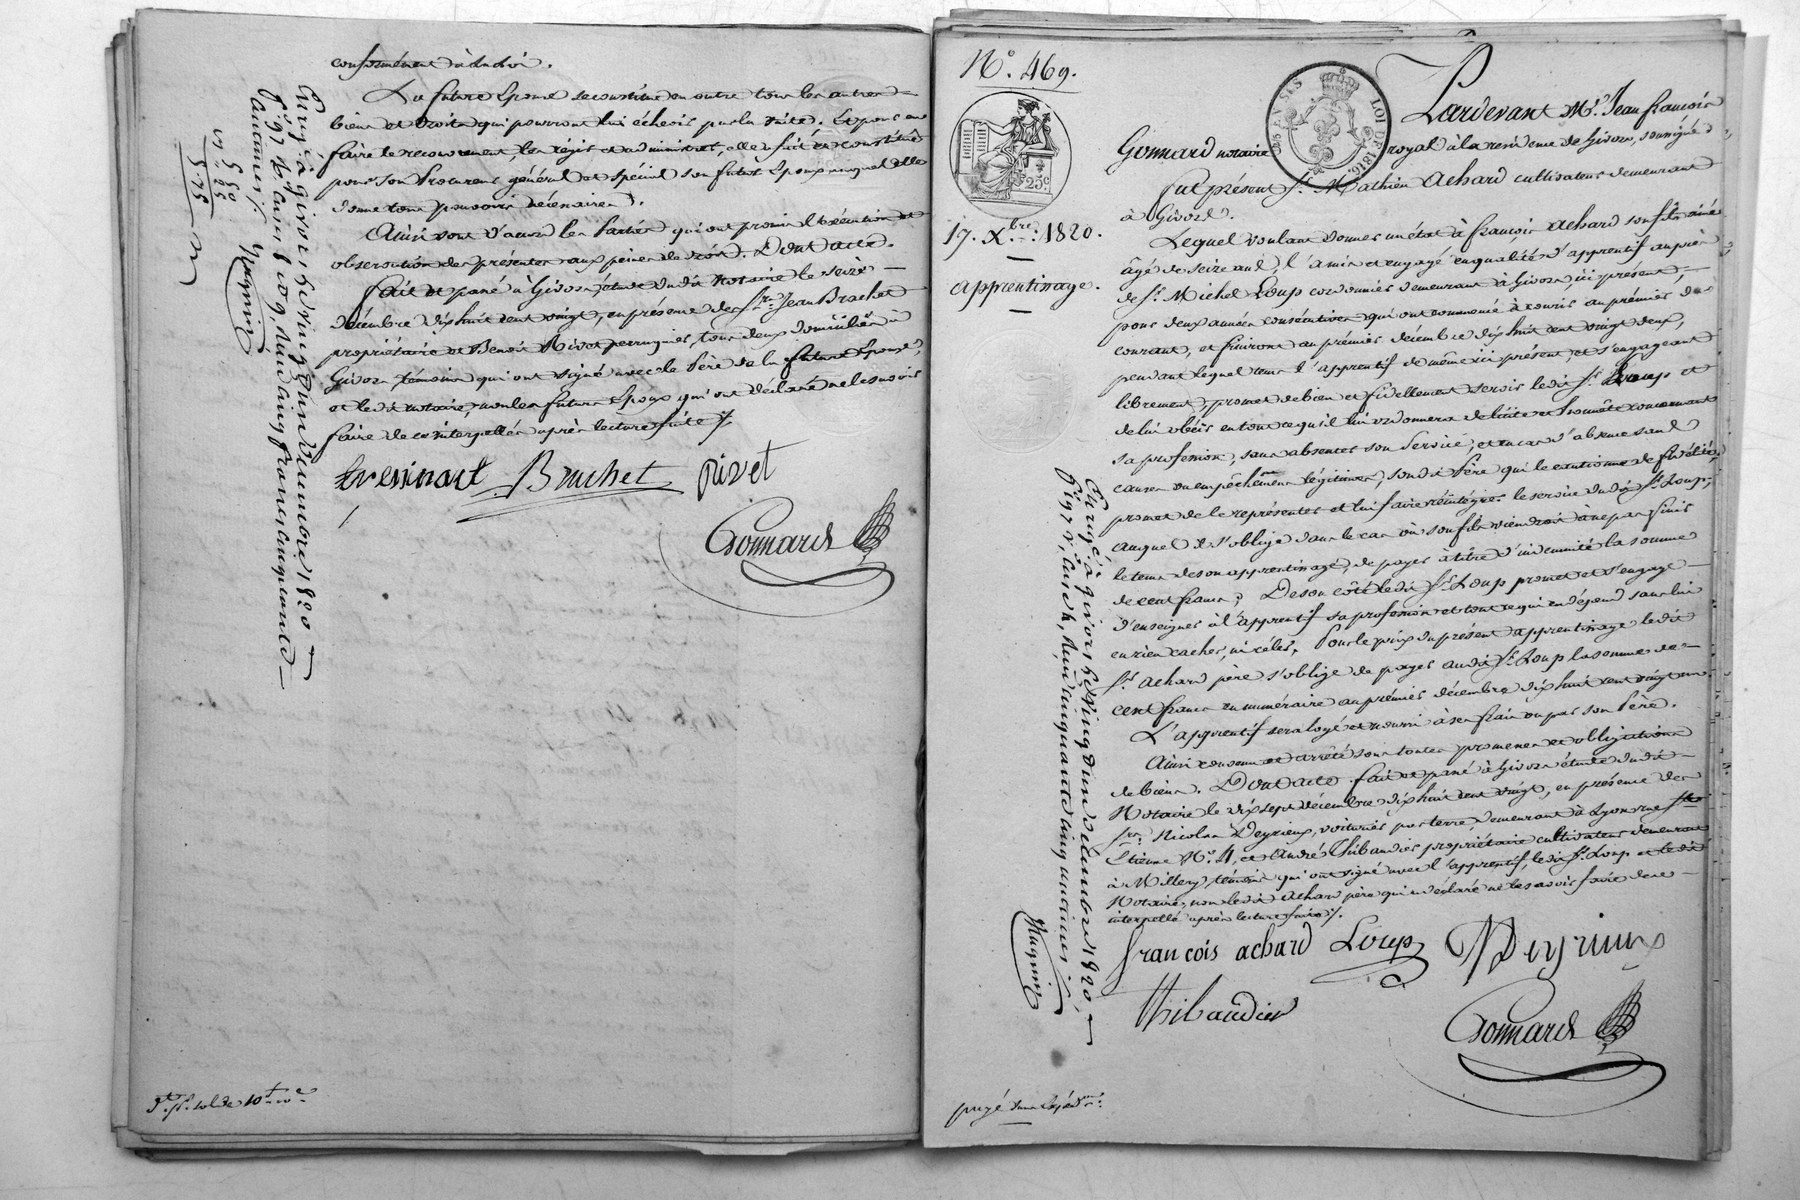 conformément à la loi.
La future Epouse se constitue en outre tous les autres
biens et droits qui pourront lui échoir par la suite. Et pour en
faire le recouvrement, les régir et administrer, elle a fait et constitué
pour son Procureur général et spécial son futur Epoux auquel elle
donne tous pouvoirs nécessaires.
Ainsi sont d'accord les Parties qui ont promis l'exécution et
observation des présentes aux peines de droit. Dont acte.
fait et passé à Givors, étude dudit Notaire le seize
décembre dix huit cent vingt, en présence des Srs. Jean Brachet
propriétaire et Benoit Rivet perruquier, tous deux domiciliés à
Givors témoins qui ont signé avec le Père de la future Epouse,
et ledit notaire, non les futurs Epoux qui ont déclaré ne le savoir
faire de ce interpellés après lecture faite ./.
Brachet
Rivet
Gonnard
Enregé à givors le vingt un décembre 1820
fo 97 Ro cases 8 et 9, Reçu cinq francs cinquante
centimes.
5 50
55
5.75
No. 469.
25c
LOI DE 1816.
17. Xbre. 1820.
apprentissage.
Pardevant Me. Jean françois
Gonnard notaire royal à la résidence de Givors, soussigné
fut présent Sr. Mathieu Achard cultivateur demeurant
à Givors.
Lequel voulant donner un état à françois Achard son fils ainé
âgé de seize ans, l'a mis et engagé en qualité d'apprentif auprès
de Sr. Michel Loup cordonnier demeurant à Givors, ici présent,
pour deux années consécutives qui ont commencé à courir au prémier du
courant, et finiront au prémier décembre dix huit cent vingt deux,
pendant lequel tems l'apprentif de même ici présent et s'engageant
librement, promet de bien et fidellement servir ledit Sr. Loup et
de lui obéir en tout ce qu'il lui ordonnera de licite et honnête concernant
sa profession, sans absenter son service, et en cas d'absence sans
causes ou empêchemens légitimes, sondit Père qui le cautionne de fidélité,
promet de le représenter et lui faire réintégrer le service dudit Sr. Loup;
auquel il s'oblige dans le cas où son fils viendroit à ne pas finir
le tems de son apprentissage, de payer à titre d'indemnité la somme
de cent francs; De son côté ledit Sr. Loup promet et s'engage
d'enseigner à l'apprentif sa profession et tout ce qui en dépend sans lui
en rien cacher, ni céler. Pour le prix du présent apprentissage ledit
Sr. Achard père s'oblige de payer audit Sr. Loup la somme de
cent francs en numéraire au prémier décembre dix huit cent vingt un.
L'apprentif sera logé et nourri à ses frais ou par son Père.
Ainsi convenu et arrêté sous toutes promesses et obligations
de biens. Dont acte. fait et passé à Givors étude dudit
Notaire le dix sept décembre dix huit cent vingt, en présence des
Srs. Nicolas Deyrieux, voiturier par terre, demeurant à Lyon rue Ste
Etienne No. 4, et André Thibaudier propriétaire cultivateur demeurant
à Millery témoins qui ont signé avec l'apprentif, ledit Sr. Loup et ledit
Notaire, non ledit Achard père qui a déclaré ne le savoir faire de ce
interpellé après lecture faite ./.
françois achard Loup Deyrieux
Thibaudier
Gonnard
Enregé à givors le vingt un décembre 1820,
fo 97 Vo case 4, Reçu cinquante cinq centimes